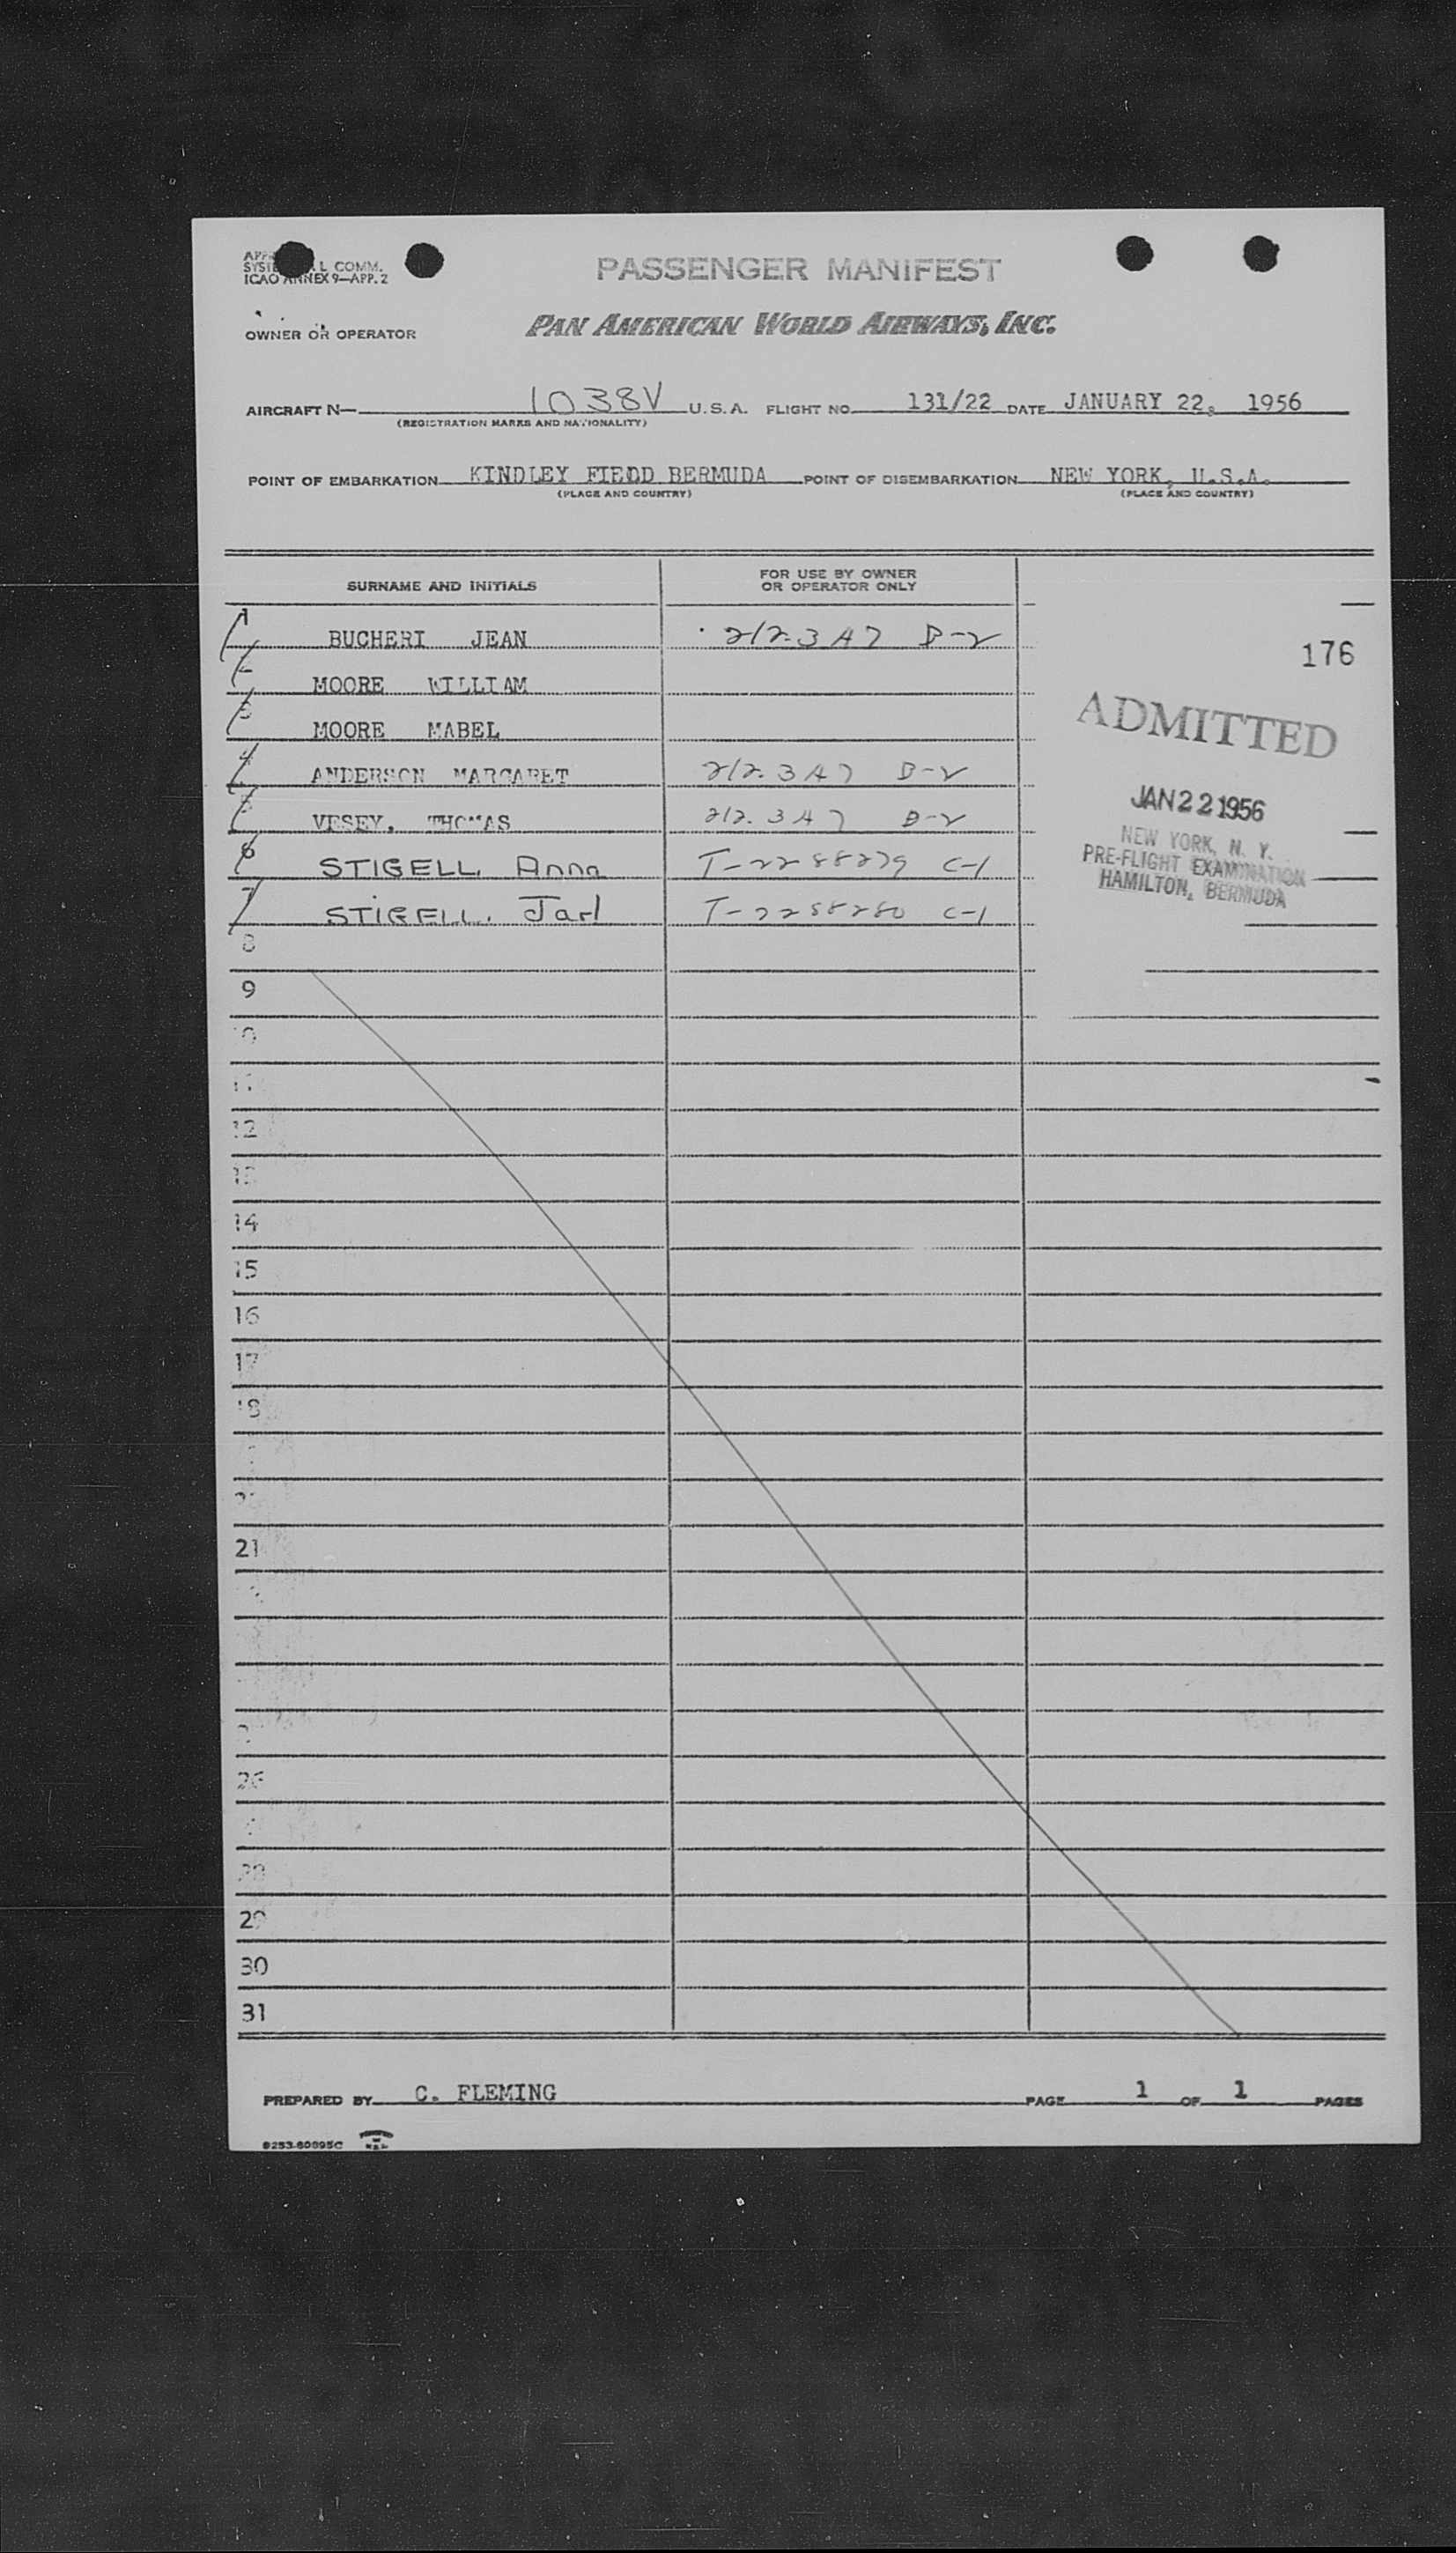 L COMM.
ICAO ANNEX 9—APP. 2
PASSENGER MANIFEST
OWNER OR OPERATOR PAN AMERICAN WORLD AIRWAYS, INC.
AIRCRAFT N— 1038V U.S.A. FLIGHT NO. 131/22 DATE JANUARY 22, 1956
(REGISTRATION MARKS AND NATIONALITY)
POINT OF EMBARKATION KINDLEY FIELD BERMUDA POINT OF DISEMBARKATION NEW YORK, U.S.A.
(PLACE AND COUNTRY) (PLACE AND COUNTRY)
SURNAME AND INITIALS FOR USE BY OWNER
OR OPERATOR ONLY
1 BUCHERI JEAN 212.3 A7 B-2
176
2 MOORE WILLIAM
3 MOORE MABEL
ADMITTED
4 ANDERSON MARGARET 212.3 A7 B-2
JAN 22 1956
5 VESEY, THOMAS 212.3 A7 B-2
NEW YORK, N. Y.
PRE-FLIGHT EXAMINATION
HAMILTON, BERMUDA
6 STIGELL, Anna T-2288279 C-1
7 STIGELL, Jarl T-2288280 C-1
8
9
10
11
12
13
14
15
16
17
18
21
26
29
30
31
PREPARED BY C. FLEMING PAGE 1 OF 1 PAGES